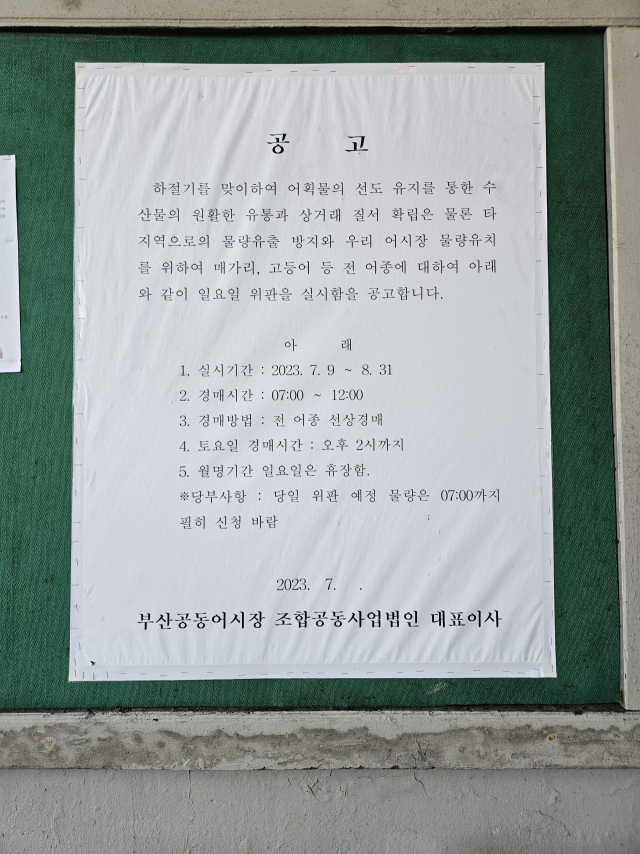 공 고
하절기를 맞이하여 어획물의 선도 유지를 통한 수
산물의 원활한 유통과 상거래 질서 확립은 물론 타
지역으로의 물량유출 방지와 우리 어시장 물량유치
를 위하여 매가리, 고등어 등 전 어종에 대하여 아래
와 같이 일요일 위판을 실시함을 공고합니다.
아 래
1. 실시기간 : 2023. 7. 9 ~ 8. 31
2. 경매시간 : 07:00 ~ 12:00
3. 경매방법 : 전 어종 선상경매
4. 토요일 경매시간 : 오후 2시까지
5. 월명기간 일요일은 휴장함.
※당부사항 : 당일 위판 예정 물량은 07:00까지
필히 신청 바람
2023. 7. .
부산공동어시장 조합공동사업법인 대표이사